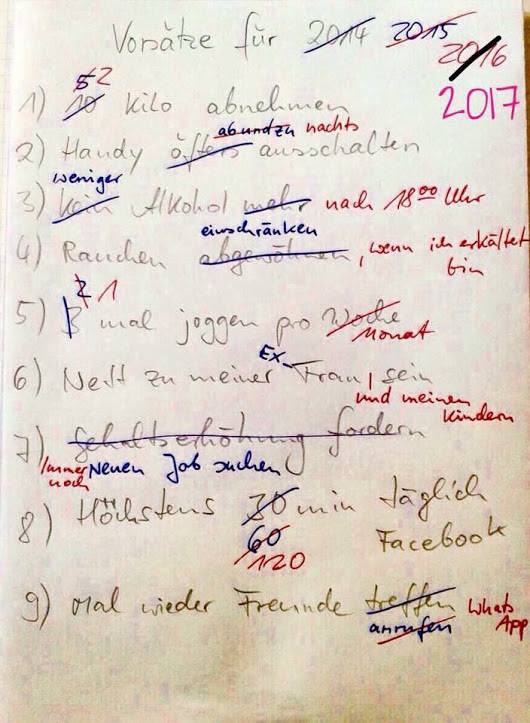 Vorsätze für 2014 2015
2016
2017
5 2
1) 10 Kilo abnehmen
ab und zu nachts
2) Handy öfters ausschalten
weniger
3) Kein Alkohol mehr nach 18°° Uhr
einschränken
4) Rauchen abgewöhnen, wenn ich erkältet
bin
2 1
5) 3 mal joggen pro Woche
Monat
Ex-
6) Nett zu meiner Frau sein
und meinen
Kindern
7) Gehaltserhöhung fordern
Immer noch Neuen Job suchen
8) Höchstens 30 min täglich
60 Facebook
120
9) Mal wieder Freunde treffen Whats
anrufen App